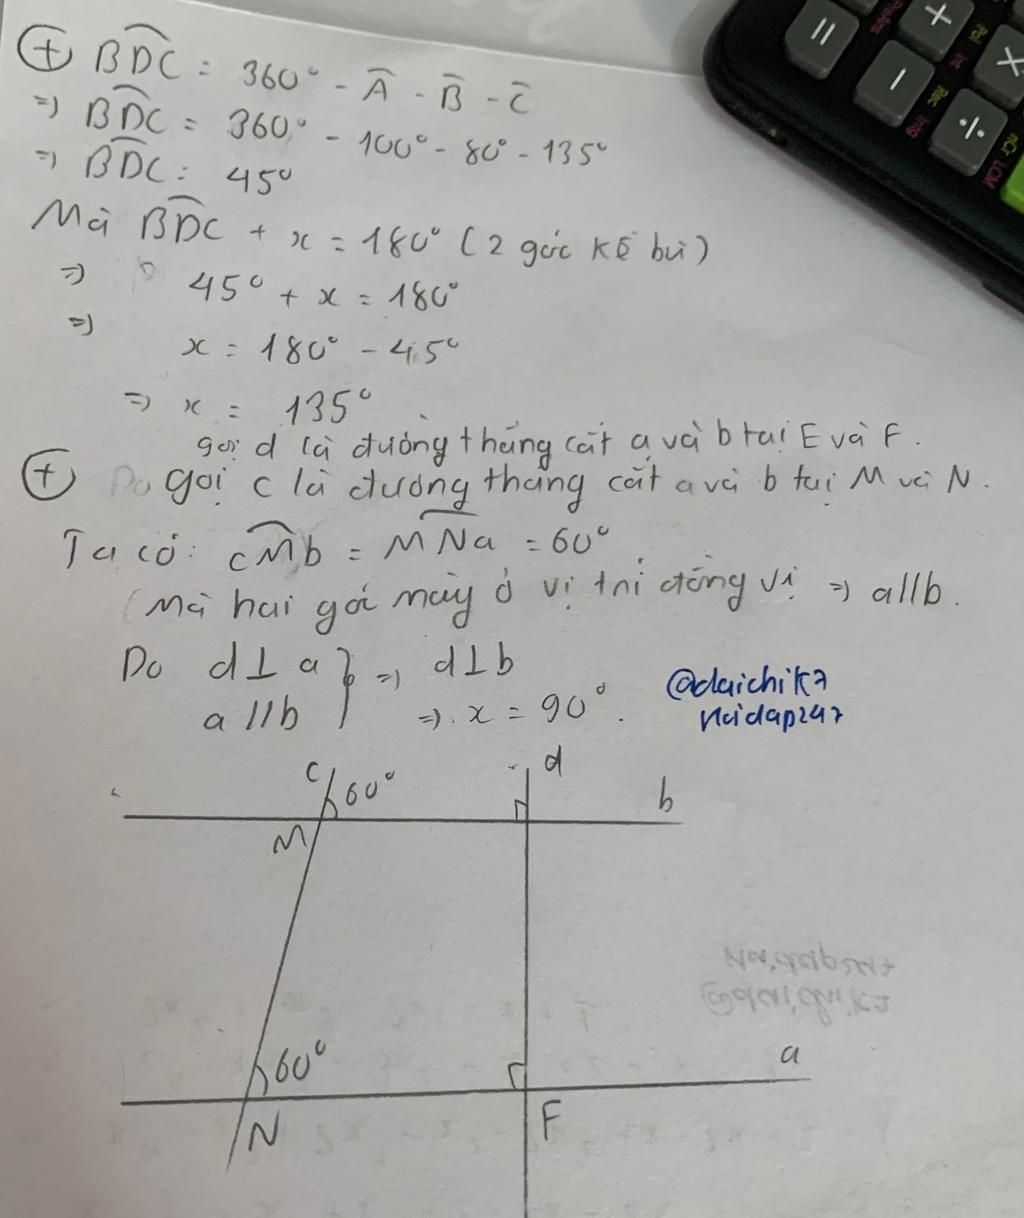 + BDC = 360° - A - B - C
=> BDC = 360° - 100° - 80° - 135°
=> BDC = 45°
Mà BDC + x = 180° (2 góc kề bù)
=> 45° + x = 180°
=> x = 180° - 45°
=> x = 135°
gọi d là đường thẳng cắt a và b tại E và F.
+ Do gọi c là đường thẳng cắt a và b tại M và N.
Ta có: cMb = MNa = 60°
(Mà hai góc này ở vị trí đồng vị => a//b.
Do d⊥a } => d⊥b
a//b } => x = 90°.
@daichik7
Hoidap247
c 60° d
b
M
60° a
N F
=
+
X
-
÷